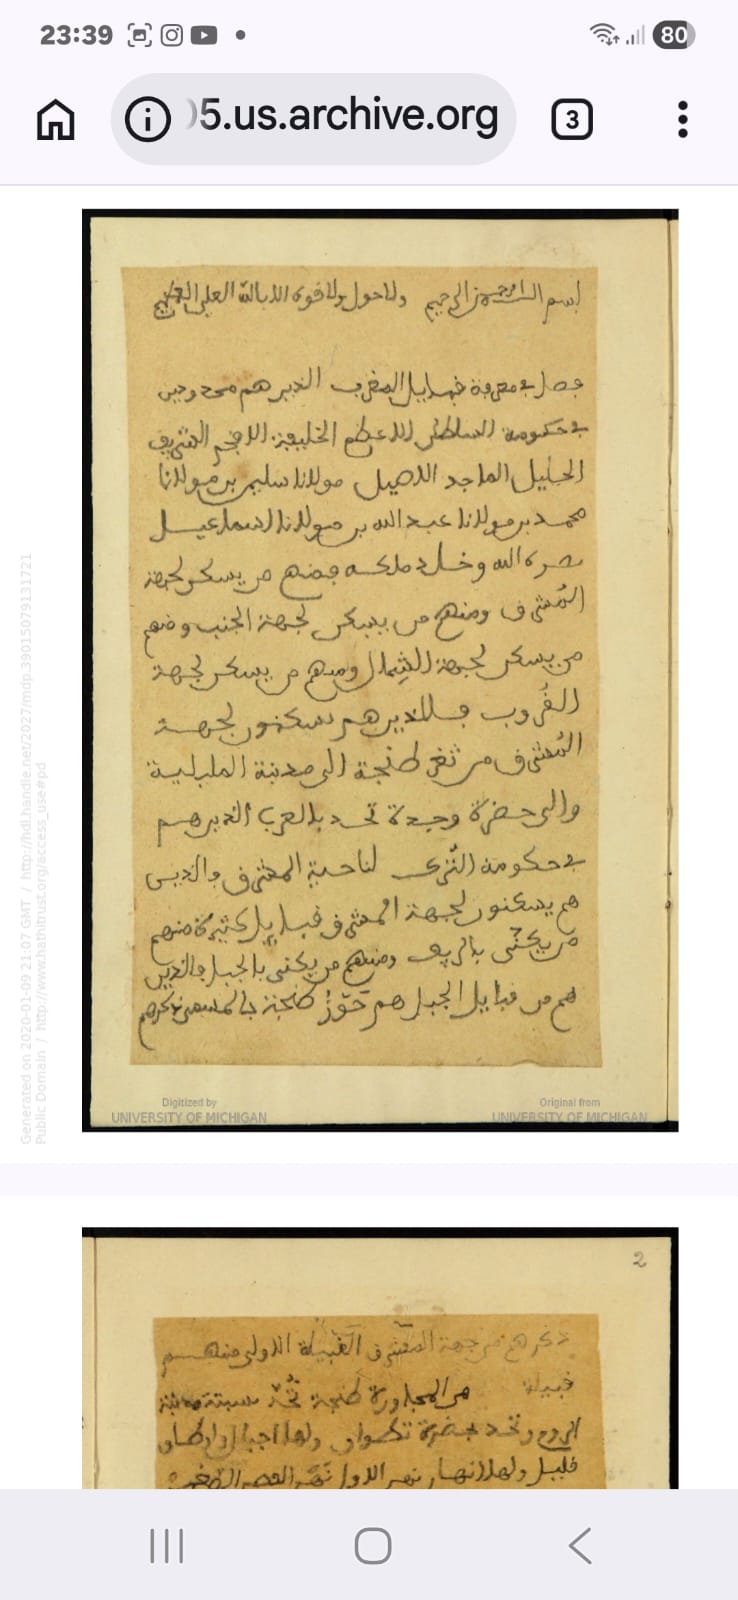 23:39
80
05.us.archive.org
3
بسم الله الرحمن الرحيم ولا حول ولا قوة الا بالله العلي العظيم
فصل في معرفة قبايل المغرب الذين هم محدودين
في حكومة السلطان الاعظم الخليفة الافخم الشريف
الجليل الماجد الاصيل مولانا سليمن بن مولانا
محمد بن مولانا عبد الله بن مولانا اسماعيل
نصره الله وخلد ملكه فمنهم من يسكن لجهة
المشرق ومنهم من يسكن لجهة الجنب ومنهم
من يسكن لجهة الشمال ومنهم من يسكن لجهة
الغروب فالذين هم يسكنون لجهة
المشرق من ثغر طنجة الى مدينة المليلية
والى حضرة وجدة تحد بالعرب الذين هم
في حكومة التركي لناحية المشرق والذين
هم يسكنون لجهة المشرق قبايل كثيرة منهم
من يكنى بالريف ومنهم من يكنى بالجبل فالذين
هم من قبايل الجبل هم حَوْز طنجة
Digitized by
UNIVERSITY OF MICHIGAN
Original from
UNIVERSITY OF MICHIGAN
Generated on 2020-01-09 21:07 GMT / http://hdl.handle.net/2027/mdp.39015079131721
Public Domain / http://www.hathitrust.org/access_use#pd
2
ذكرهم من جهة المشرق القبيلة الاولى منهم
قبيلة من المجاورة طنجة تحد سبتة مدينة
الروم وتحد بحضرة تطوان ولها اجبال واوطا
قليل ولها انهار نهر الاول نهر القصر الصغير